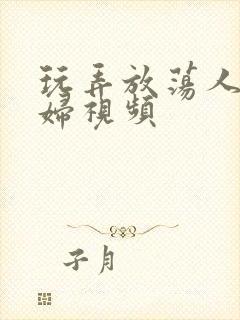 玩弄放蕩人
婦視頻
子月